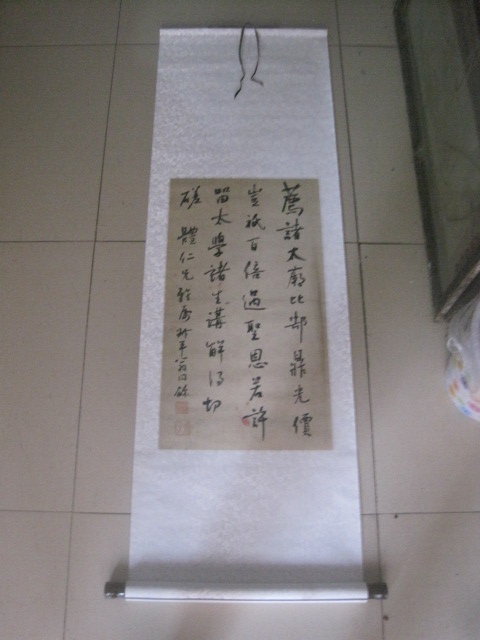 薦諸太廟比郜鼎光價
豈祇百倍過聖恩若許
留太學諸生講解得切
磋 體仁先
翁同龢